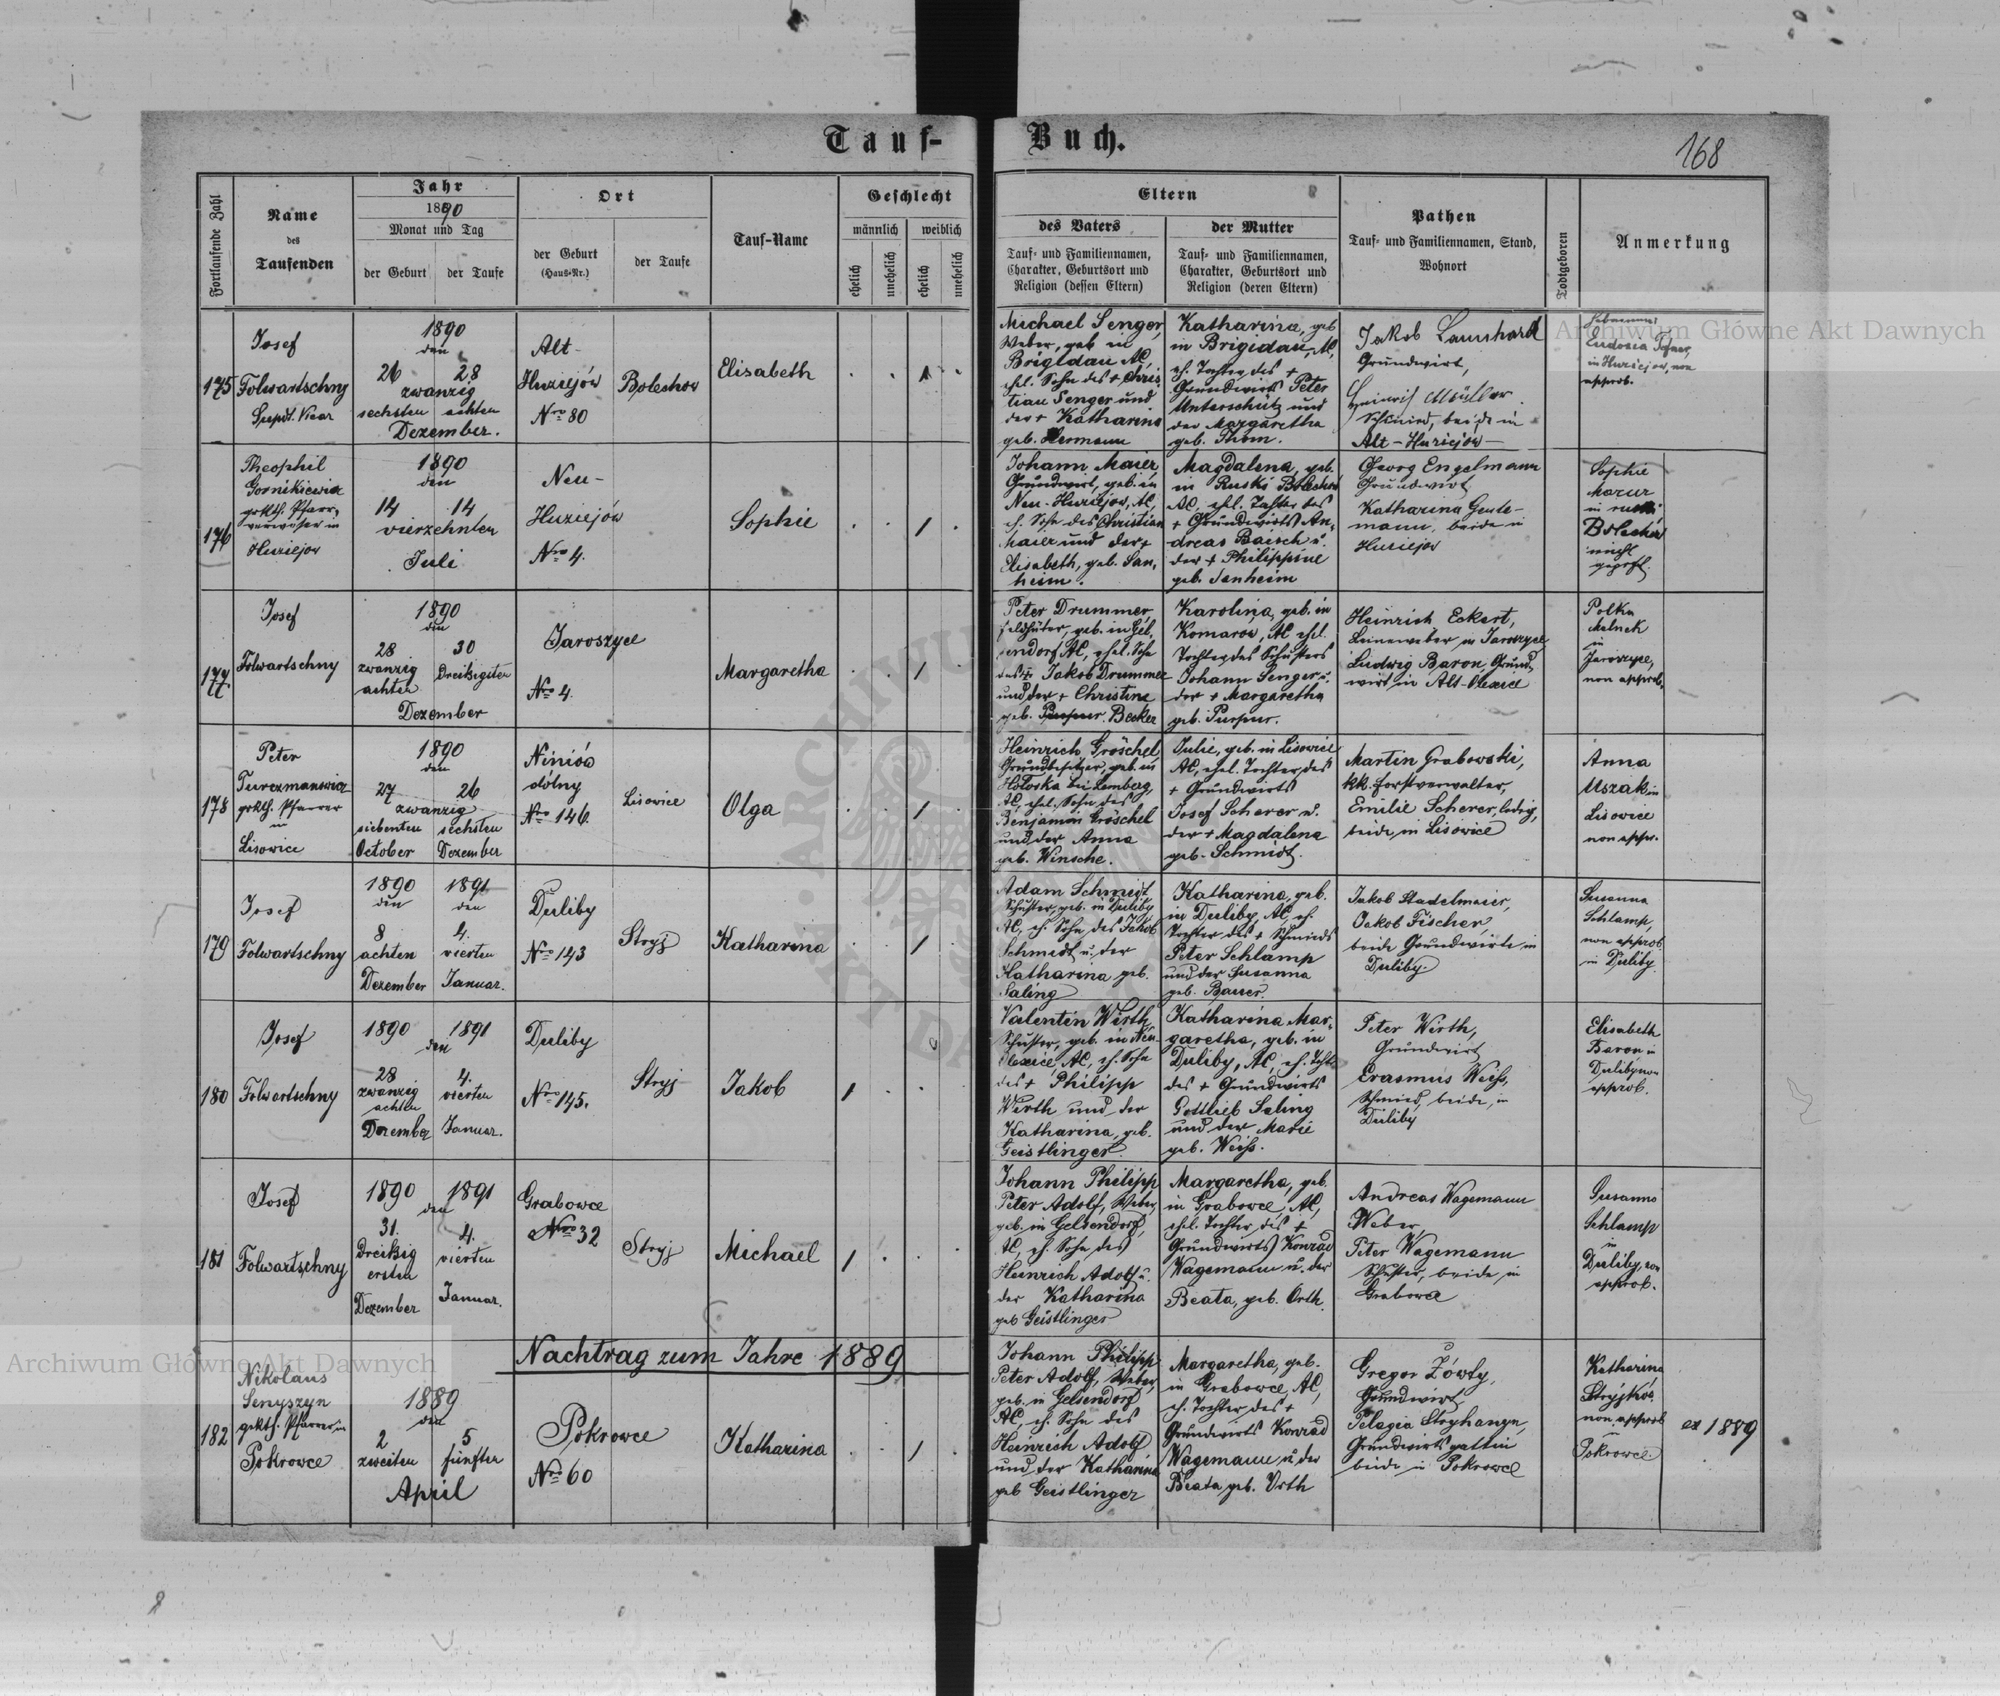 Tauf-
Buch.
168
Fortlaufende Zahl
Name
des
Taufenden
Jahr
1890
Monat und Tag
der Geburt
der Taufe
Ort
der Geburt
(Haus-Nr.)
der Taufe
Tauf-Name
Geschlecht
männlich
weiblich
ehelich
unehelich
ehelich
unehelich
Eltern
des Vaters
Tauf- und Familiennamen,
Charakter, Geburtsort und
Religion (dessen Eltern)
der Mutter
Tauf- und Familiennamen,
Charakter, Geburtsort und
Religion (deren Eltern)
Pathen
Tauf- und Familiennamen, Stand,
Wohnort
Todtgeboren
Anmerkung
175
Josef
Folwartschny
Vicar
1890
den
26 28
zwanzig
sechsten achten
Dezember.
Alt-
Huziejów
Nro 80
Bolechow
Elisabeth
1
Michael Senger,
Weber, geb. in
Brigidau AC,
ehel. Sohn des + Chris
tian Senger und
der + Katharina
geb. Hermann
Katharina, geb.
in Brigidau, AC,
eh. Tochter des +
Grundwirts Peter
Unterschütz und
der Margaretha
geb. Thom.
Jakob Launhard
Grundwirt,
Heinrich Müller
Schmied, beide in
Alt-Huziejów
Eudosia
in Huziejow, non
approb.
176
Theophil
Gornikiewicz
grkth. Pfarr-
verweser in
Huziejow
1890
den
14 14
vierzehnten
Juli
Neu-
Huziejów
Nro 4.
Sophie
1
Johann Maier,
Grundwirt, geb. in
Neu-Huziejow, AC,
eh. Sohn des Christian
Maier und der +
Elisabeth, geb. San,
heim.
Magdalena, geb.
in Ruski Bolechow
AC, ehel. Tochter des
+ Grundwirts An,
dreas Baisch u.
der + Philippine
geb. Sanheim
Georg Engelmann
Grundwirt
Katharina
mann, beide in
Huziejow
Sophie
Mazur
in
Bolechów
nicht
geprft.
177
Josef
Folwartschny
1890
den
28 30
zwanzig Dreißigsten
achten
Dezember
Jaroszyce
Nro 4.
Margaretha
1
Peter Drummer
Feldhüter, geb. in Gel,
sendorf AC, ehel. Sohn
des + Jakob Drummer
und der + Christine
geb. Purpur. Becker
Karolina, geb. in
Komarow, AC ehel.
Tochter des Schusters
Johann Senger u.
der + Margaretha
geb. Purpur.
Heinrich Eckert,
Leineweber in Jaroszyce
Ludwig Baron, Grund,
wirt in Alt-Olexice
Polka
Melnek
in
Jaroszyce,
non approb.
178
Peter
Turczmanowicz
grkth. Pfarrer
in
Lisowice
1890
den
27 26
zwanzig
siebenten sechsten
October Dezember
Niniów
dólny
Nro 146.
Lisowice
Olga
1
Heinrich Gröschel,
Grundbesitzer, geb. in
Hołosko bei Lemberg,
AC, ehel. Sohn des
Benjamin Gröschel
und der Anna
geb. Winsche.
Julie, geb. in Lisowice
AC, ehel. Tochter des
+ Grundwirts
Josef Scherer u.
der + Magdalena
geb. Schmidt.
Martin Grabowski,
kk. Forstverwalter,
Emilie Scherer, ledig,
beide in Lisowice
Anna
Uszak in
Lisowice
non appr.
179
Josef
Folwartschny
1890 1891
den den
8 4.
achten vierten
Dezember Januar.
Duliby
Nro 143
Stryj
Katharina
1
Adam Schmidt
Schuster, geb. in Duliby
AC, eh. Sohn des Jakob
Schmidt u. der
Katharina geb.
Saling
Katharina, geb.
in Duliby, AC, eh.
Tochter des + Schmieds
Peter Schlamp
und der Susanna
geb. Bauer.
Jakob Stadelmaier,
Jakob Fischer,
beide Grundwirte in
Duliby.
Susanna
Schlamp,
non approb.
in Duliby.
180
Josef
Folwartschny
1890 1891
den
28 4.
zwanzig vierten
achten
Dezember Januar.
Duliby
Nro 145.
Stryj
Jakob
1
Valentin Wirth,
Schuster, geb. in Neu-
Olexice, AC, eh. Sohn
des + Philipp
Wirth und der
Katharina, geb.
Geistlinger.
Katharina Mar,
garetha, geb. in
Duliby, AC, eh. Tochter
des + Grundwirts
Gottlieb Saling
und der Marie
geb. Weiss.
Peter Wirth,
Grundwirt
Erasmus Weiss,
Schmied, beide in
Duliby
Elisabeth
Baron in
Duliby non
approb.
181
Josef
Folwartschny
1890 1891
den
31. 4.
Dreißig vierten
ersten
Dezember Januar.
Grabowce
Nro 32
Stryj
Michael
1
Johann Philipp
Peter Adolf, Weber,
geb. in Gelsendorf,
AC, eh. Sohn des
Heinrich Adolf u.
der Katharina
geb. Geistlinger
Margaretha, geb.
in Grabowce, AC,
ehel. Tochter des +
Grundwirts Konrad
Wagemann u. der
Beata, geb. Orth.
Andreas Wagemann
Weber,
Peter Wagemann
Schuster, beide in
Grabowce
Susanna
Schlamp
in
Duliby, non
approb.
Nachtrag zum Jahre 1889
182
Nikolaus
Senyszyn
grkth. Pfarrer in
Pokrowce
1889
den
2 5
zweiten fünften
April
Pokrowce
Nro 60
Katharina
1
Johann Philipp
Peter Adolf, Weber,
geb. in Gelsendorf
AC, eh. Sohn des
Heinrich Adolf
und der Katharina
geb. Geistlinger
Margaretha, geb.
in Grabowce, AC,
eh. Tochter des +
Grundwirts Konrad
Wagemann u. der
Beata geb. Orth
Gregor Zówty,
Grundwirt
Pelagia Stryhanyn,
Grundwirtsgattin
beide in Pokrowce
Katharina
non approb
in
Pokrowce
ex 1889
Archiwum Główne Akt Dawnych
Archiwum Główne Akt Dawnych